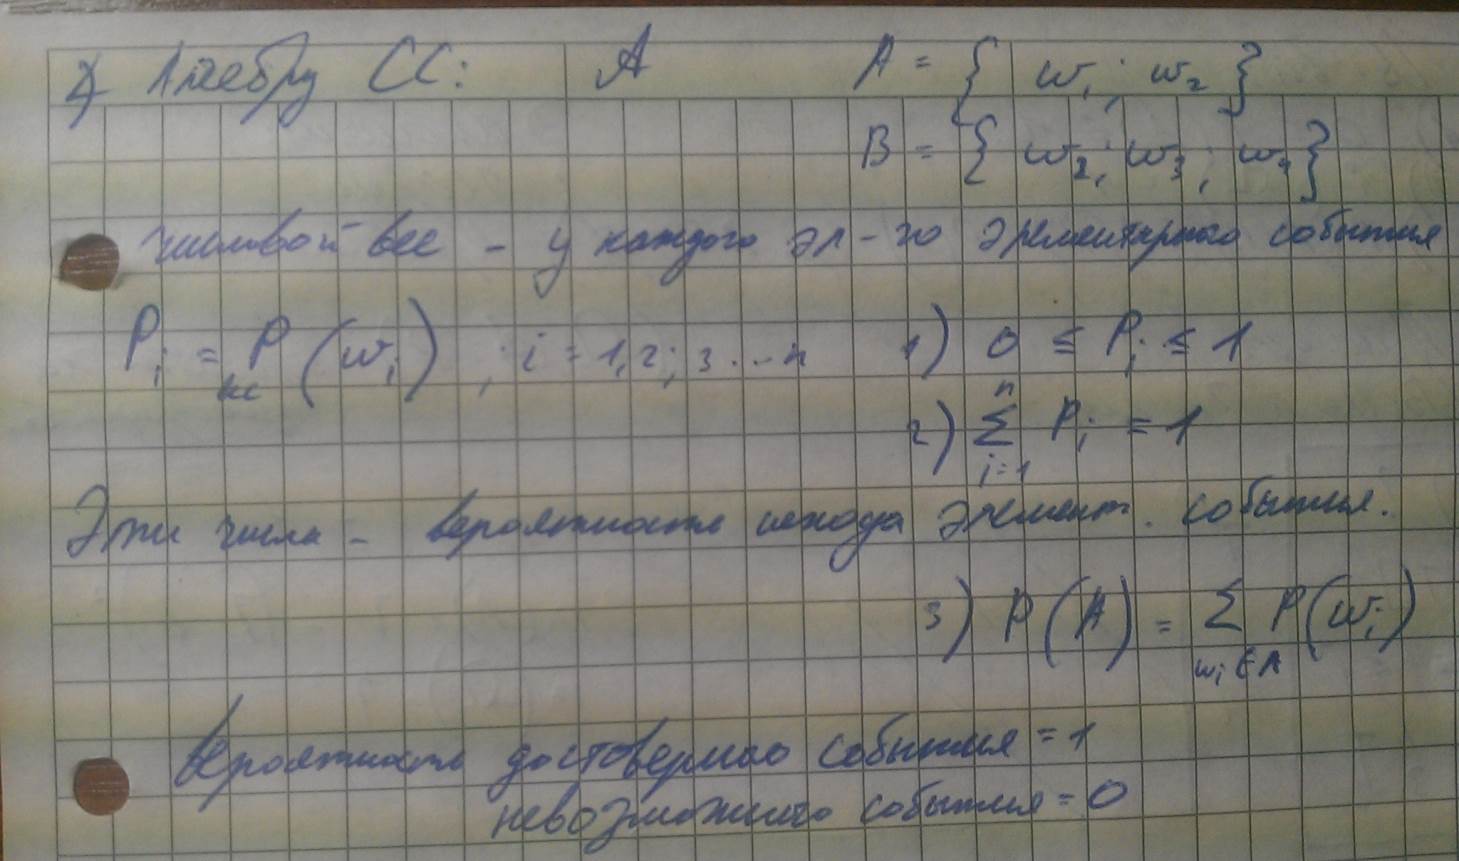 2) Алгебру СС: A A = { w₁; w₂ }
B = { w₂; w₃; w₄ }
числовой вес - у каждого эл-го элементарного события
Pᵢ = P (wᵢ) ; i = 1,2; 3 ... n 1) 0 ≤ Pᵢ ≤ 1
2) ∑ⁿᵢ₌₁ Pᵢ = 1
Эти числа - вероятность исхода элемент. события.
3) P(A) = ∑ P(wᵢ)
wᵢ ∈ A
вероятность достоверного события = 1
невозможного события = 0